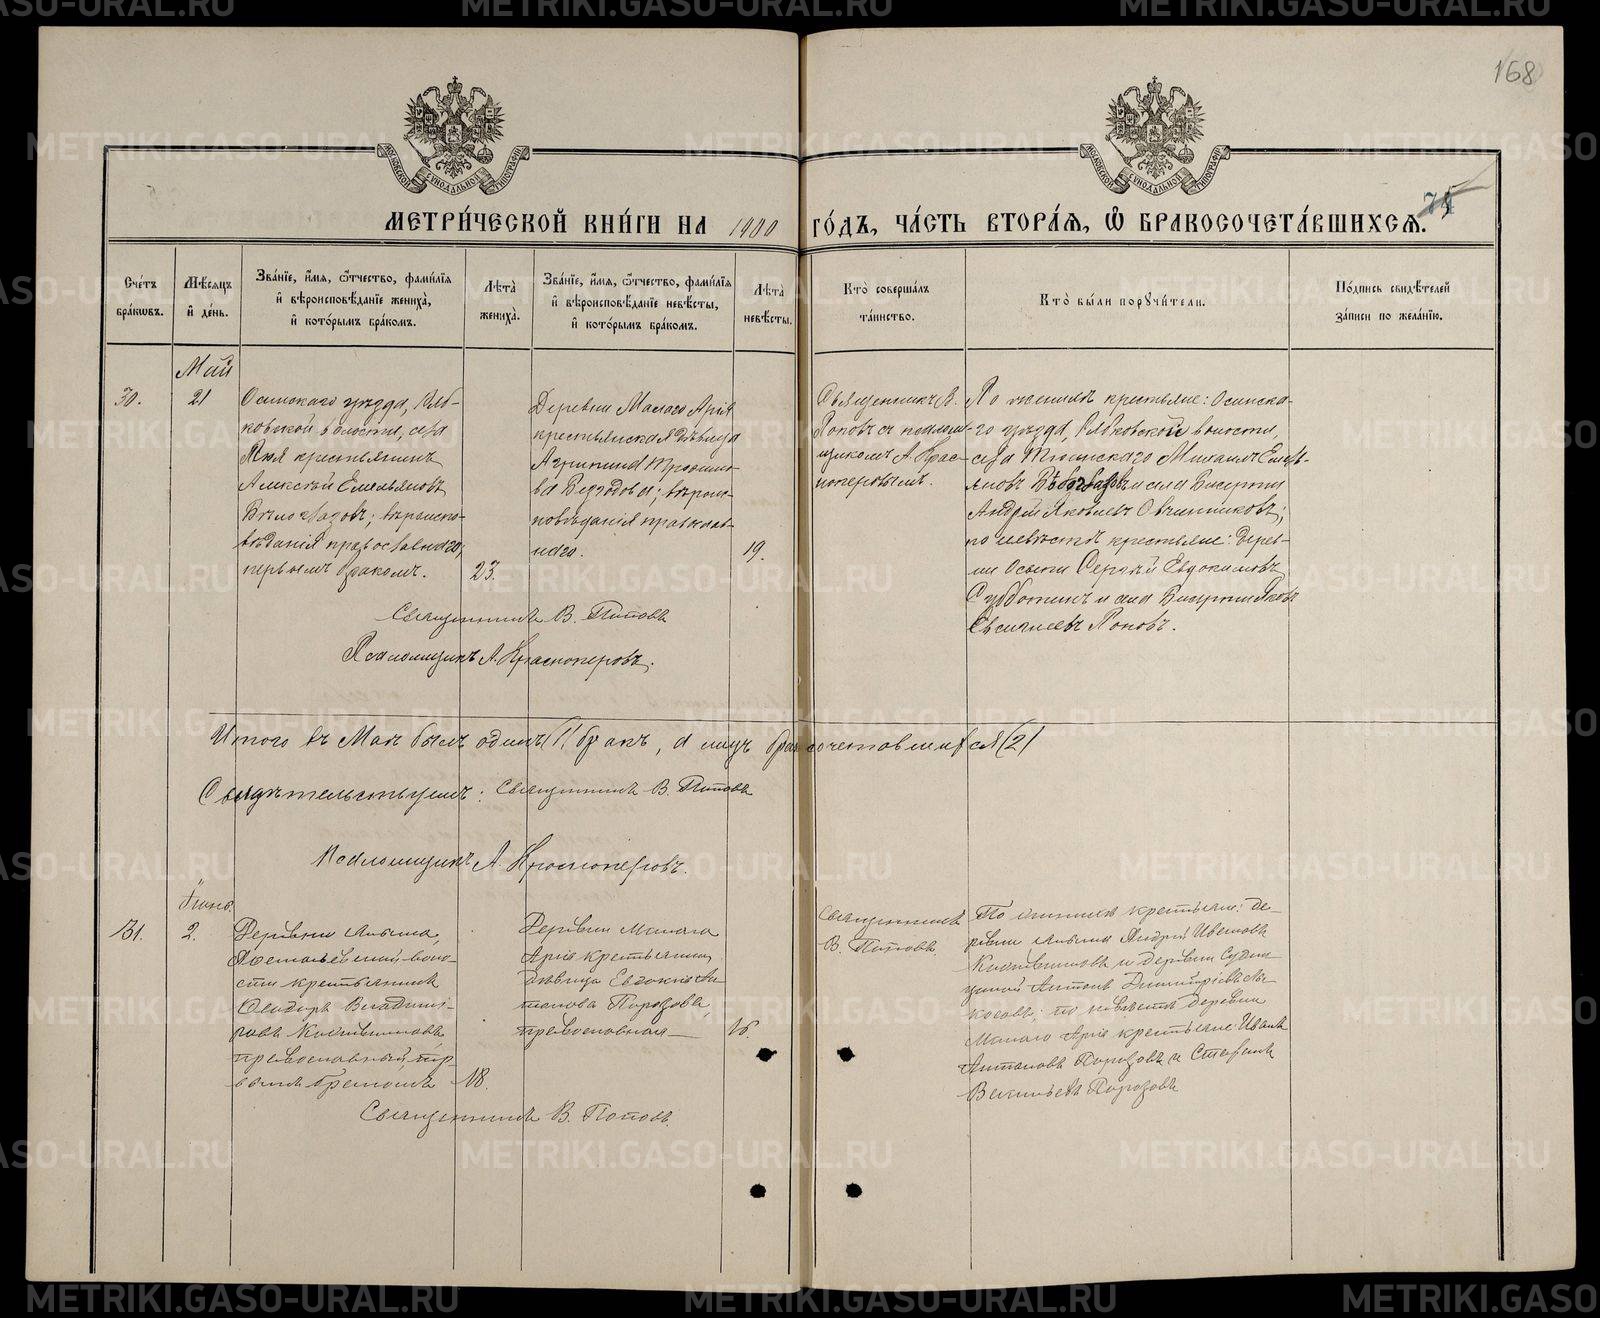 168
74
МЕТРИ́ЧЕСКОЙ КНИ́ГИ НА 1900 ГО́ДЪ, ЧА́СТЬ ВТОРА́Я, Ѽ БРАКОСОЧЕТА́ВШИХСЯ.
Сче́тъ бра́ковъ.
Мѣ́сяцъ и҆ де́нь.
Зва́нїе, и҆́мя, ѻ҆́тчество, фами́лїя
и҆ вѣроисповѣ́данїе жениха̀,
и҆ кото́рымъ бра́комъ.
Лѣ́та жениха̀.
Зва́нїе, и҆́мя, ѻ҆́тчество, фами́лїя
и҆ вѣроисповѣ́данїе невѣ́сты,
и҆ кото́рымъ бра́комъ.
Лѣ́та невѣ́сты.
Кто̀ соверша́лъ
та́инство.
Кто̀ бы́ли порꙋчи́тели.
По́дпись свидѣ́телей
за́писи по жела́нїю.
Май
30.
21
Осинскаго уѣзда, Ряб-
ковской волости, села
крестьянинъ
Алексѣй Емельяновъ
Бѣлоглазовъ; вѣроиспо-
вѣданія православнаго,
первымъ бракомъ.
23.
Деревни Малаго Арія
крестьянская дѣвица
Агрипина
вѣроис-
повѣданія православ-
наго.
19.
Священникъ В.
Поповъ съ псалом-
щикомъ А. Крас-
ноперовымъ.
По женихѣ крестьяне: Осинска-
го уѣзда, Рябковской волости,
села Михаилъ Емель-
яновъ Бѣлоглазовъ и села Бисерти
Андрей Яковлевъ Овчинниковъ;
по невѣстѣ крестьяне: Дерев-
ни Осыпи Сергѣй Евдокимовъ
Субботинъ и села Бисерти Яковъ
Поповъ.
Священникъ В. Поповъ
Псаломщикъ А. Красноперовъ.
Итого въ Маѣ былъ одинъ (1) бракъ, а лицъ бракосочетавшихся (2)
Свидѣтельствуемъ: Священникъ В. Поповъ
Псаломщикъ А. Красноперовъ.
Іюнь.
31.
2.
Деревни
воло-
сти крестьянинъ
Ѳеодоръ Владимі-
ровъ Костышиновъ,
православный, пер-
вымъ бракомъ
18.
Деревни Малаго
Арія крестьянин.
дѣвица Евдокія Ан-
танова Порозова,
православная
16.
Священникъ
В. Поповъ.
По женихѣ крестьяне: де-
ревни Андрей Ивановъ
и деревни
Антонъ Димитріевъ
по невѣстѣ деревни
Малаго Арія крестьяне: Иванъ
Антановъ Порозовъ и Стефанъ
Васильевъ Порозовъ
Священникъ В. Поповъ.
METRIKI.GASO-URAL.RU